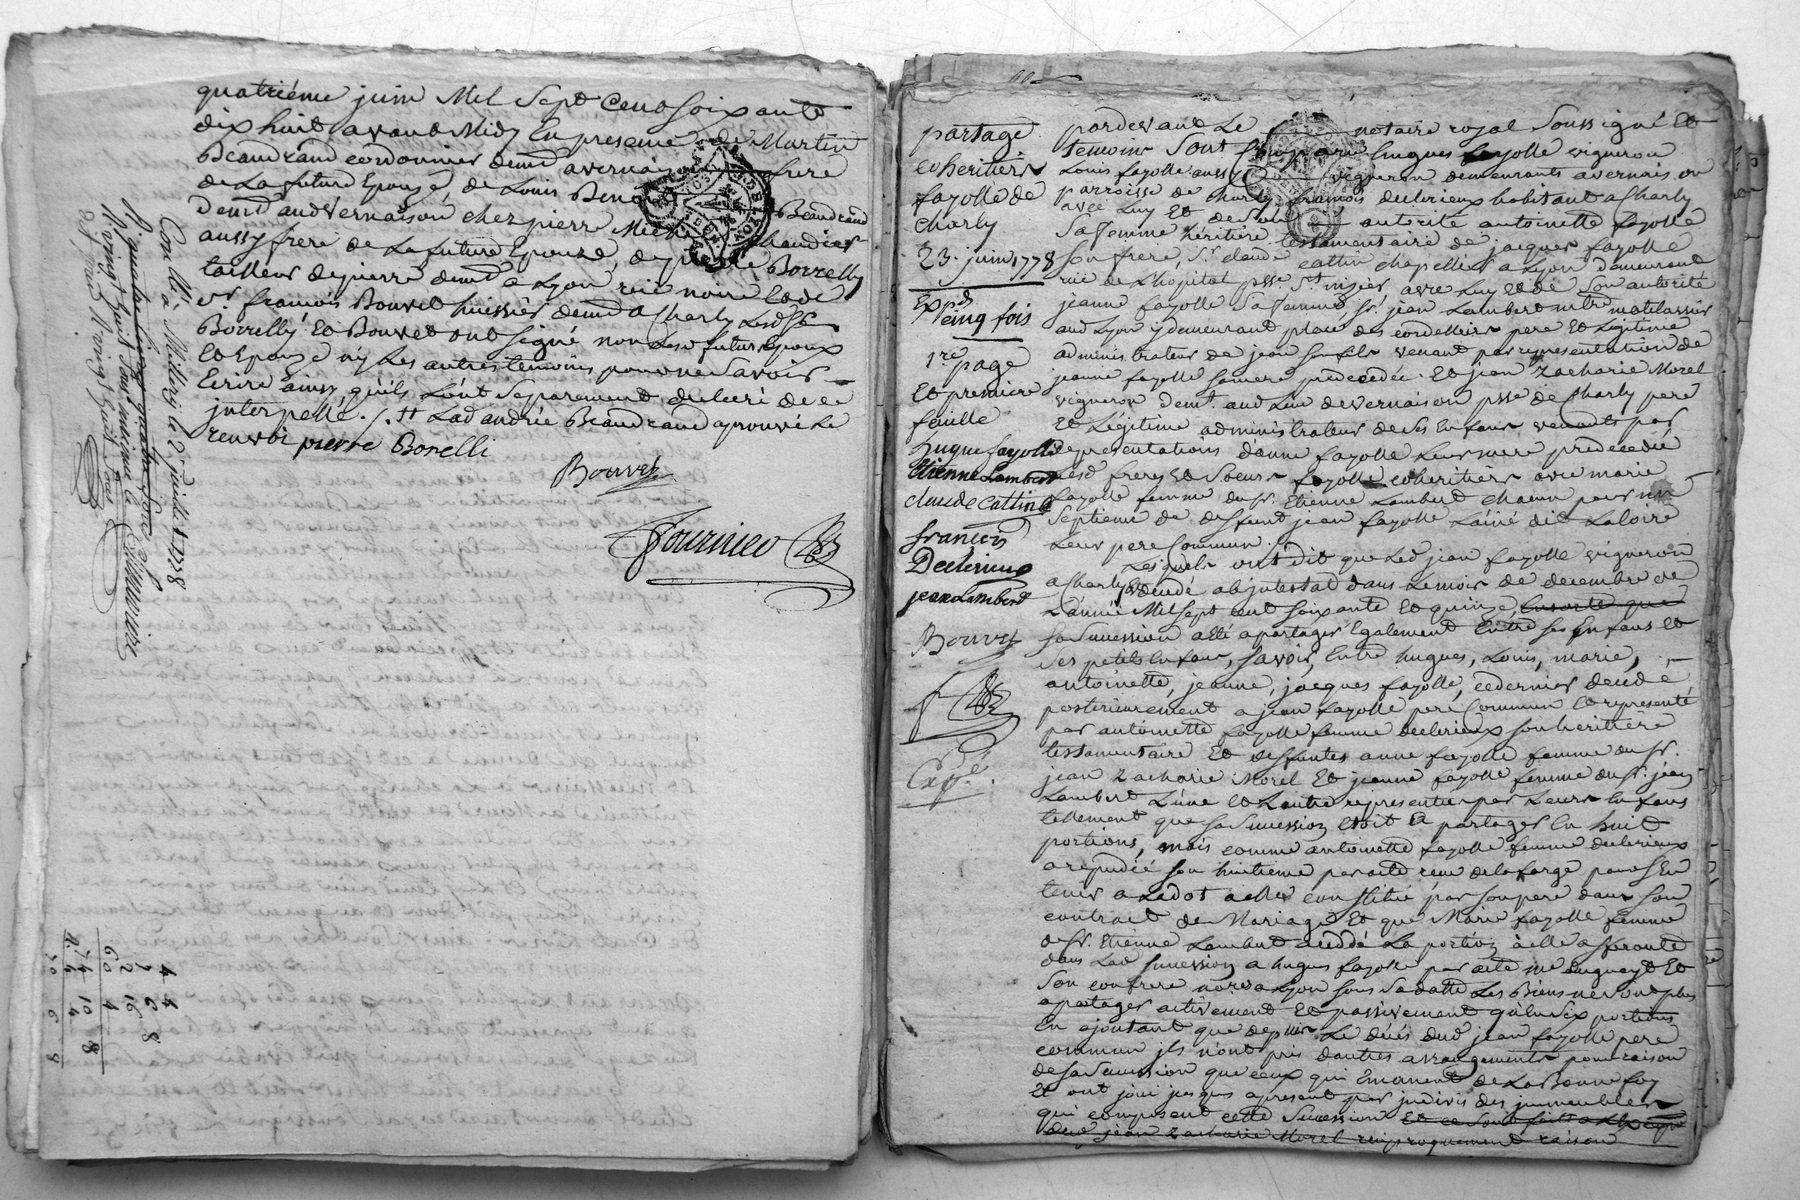 quatriéme juin Mil Sept Cent Soixante
dix huit avant Midy En presence de Martin
Beaudrand cordonnier demt a vernaison frere
de La future Epouze, de Louis Beno Beaudrand
demt aud vernaison chez pierre Michel
aussy frere de La future Epouze, de pierre Borrelly
tailleur de pierre demt a Lyon rüe noire Et de
Sr francois Bouvet huissier demt a Charly Lesd Srs
Borrelly Et Bouvet ont signé non Lesd futurs epoux
Et Epouze ny Les autres temoins pour ne Savoir
Ecrire ainsy qu'ils L'ont Separement declaré de ce
interpellé ./. Lad andrée Beaudrand aprouvé Le
renvoi pierre Borelli
Bouvet
Fournier
Conllé a Millery le 2 juillet 1778
R. quatre livres quatre sous
Ringt huit sous
4 4
7 6 8
2 16
60 4
partage
coheritiers
fayolle de
Charly
23. juin 1778
Expd
cinq fois
1re page
Et premiere
feuille
hugue fayolle
Etienne Lambert
claude Cattin
francois
Declerieux
jean Lambert
Bouvet
Expé.
pardevant Le notaire royal Soussigné Et
temoins Sont hugues fayolle vigneron
Louis fayolle aussy vigneron demeurants a vernaison
parroisse de Charly francois declerieux habitant a Charly
avec Luy Et de son autorité antoinette fayolle
Sa femme heritiere testamentaire de jacques fayolle
Son frere, Sr claude Cattin chapellier a Lyon demeurant
rüe de L'hopital psse St. nizier avec Luy Et de Son autorité
jeanne fayolle Sa femme Sr. jean Lambert mtre matelassier
aud Lyon y demeurant place des cordelliers pere Et Legitime
administrateur de jean Son fils venant par representation de
jeanne fayolle Sa mere predecedée. Et jean Zacharie Morel
vigneron demt. aud Lieu de vernaison psse de Charly pere
Et Legitime administrateur de Ses Enfans venants par
representations d'anne fayolle Leur mere predecedée
Lesd freres Et Soeurs fayolle coheritiers avec marie
fayolle femme du Sr. Etienne Lambert chacun pour un
Septieme de deffunt jean fayolle L'ainé dit Laloire
Leur pere Commun.
Lesquels ont dit que Led jean fayolle vigneron
a Charly decedé abintestat dans Le mois de decembre de
L'année Mil Sept cent Soixante Et quinze, Ensorte que
Sa Succession a Eté a partager Egalement Entre ses Enfans Et
Ses petits Enfans, Savoir, Entre hugues, Louis, marie,
antoinette, jeanne, jacques fayolle, ce dernier decedé
posterieurement a jean fayolle pere Commun Et representé
par antoinette fayolle femme declerieux son heritiere
testamentaire Et deffuntes anne fayolle femme du Sr.
jean Zacharie Morel Et jeanne fayolle femme du Sr. jean
Lambert L'une Et L'autre representées par Leurs Enfans
tellement que Sa Succession Etoit A partager En huit
portions, mais comme antoinette fayolle femme declerieux
a repudié Son huitieme par acte recu delaforge pour S'en
tenir a La dot a elle constitué par Son pere dans Son
contrait de Mariage Et que Marie fayolle femme
de Sr. Etienne Lambert a cedé La portion à elle afferente
dans Lad Succession a hugues fayolle par acte me Et
Son confrere nores a Lyon Sous Sa datte Les Biens ne sont plus
a partager activement Et passivement qu'en six portions
En ajoutant que depuis Le décés dud jean fayolle pere
commun ils n'ont pris d'autres arrangements pour raison
de Sa Succession que ceux qui Emanent de La Bonne foy
Et ont joui jusqu'a present par indivis des immeubles
qui composent cette Succession Et ce Sont
jean Zacharie Morel reciproquement raison